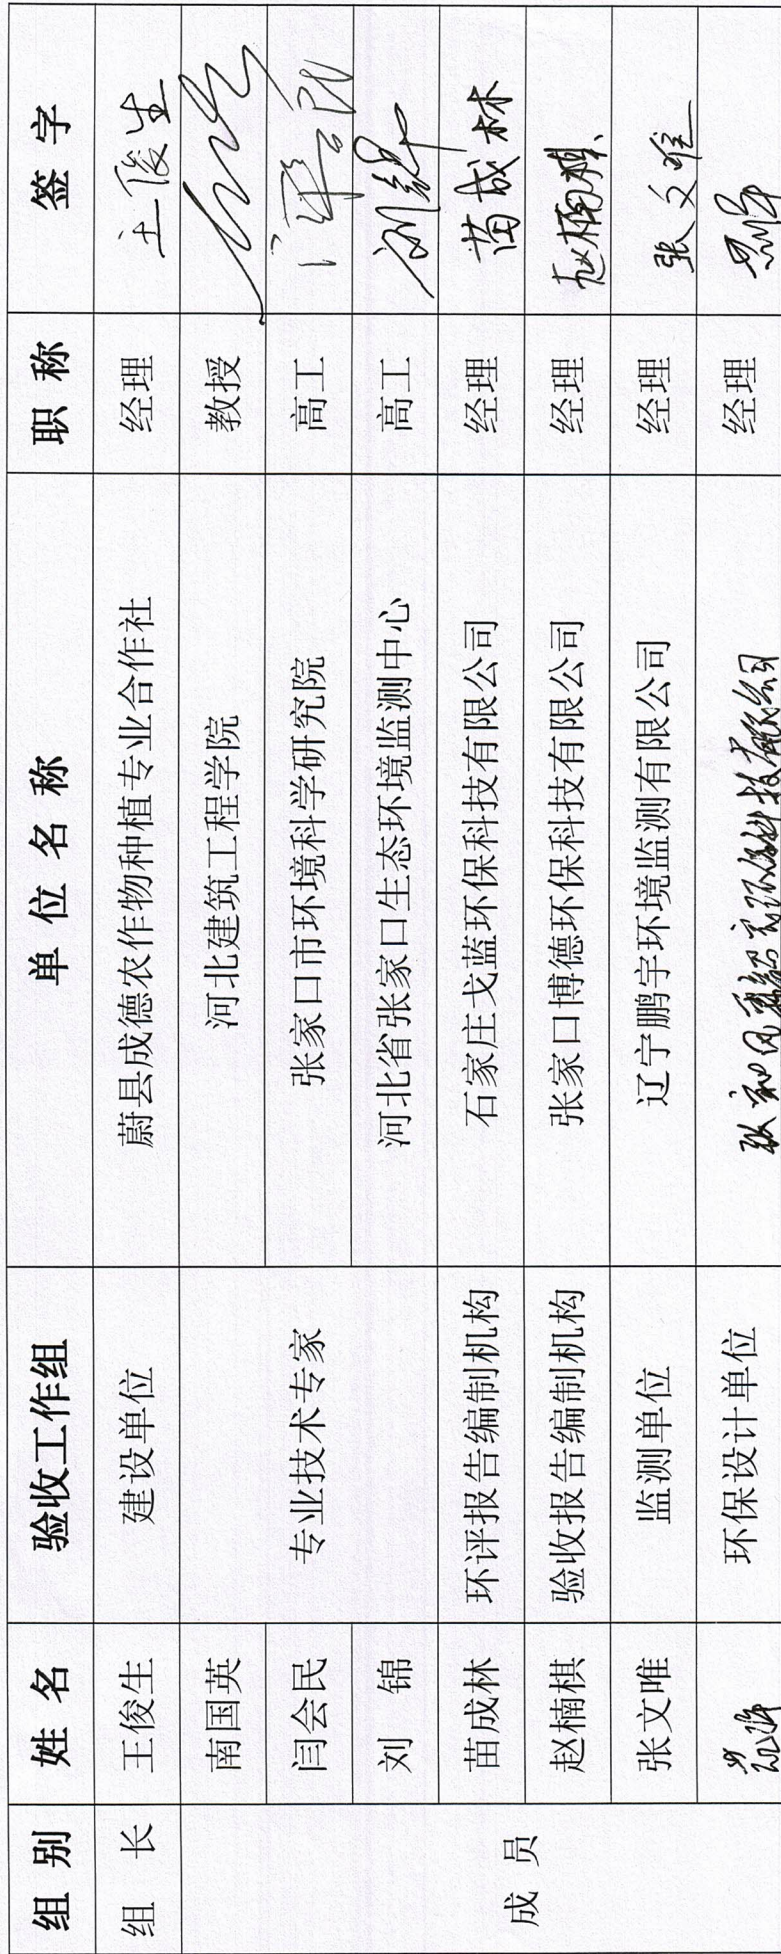 组 别 姓 名 验收工作组 单 位 名 称 职 称 签 字
组 长 王俊生 建设单位 蔚县成德农作物种植专业合作社 经理 王俊生
成 员 南国英 专业技术专家 河北建筑工程学院 教授
闫会民 张家口市环境科学研究院 高工
刘 锦 河北省张家口生态环境监测中心 高工 刘锦
苗成林 环评报告编制机构 石家庄戈蓝环保科技有限公司 经理 苗成林
赵楠棋 验收报告编制机构 张家口博德环保科技有限公司 经理 赵楠棋
张文唯 监测单位 辽宁鹏宇环境监测有限公司 经理 张文唯
环保设计单位 经理